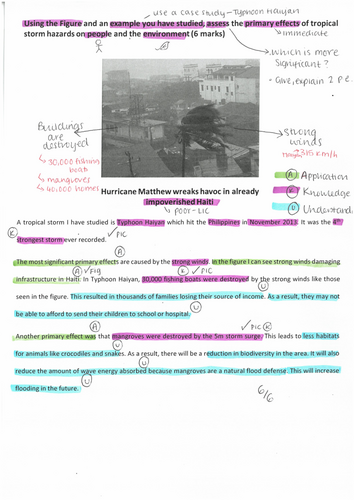 use a case study - Typhoon Haiyan
Using the Figure and an example you have studied, assess the primary effects of tropical
storm hazards on people and the environment (6 marks)
immediate
which is more
significant?
Give, explain 2 P.E.
Buildings
are
destroyed
30,000 fishing
boats
mangroves
40,000 homes
strong
winds
315 km/h
A Application
K Knowledge
U Understand
Hurricane Matthew wreaks havoc in already
impoverished Haiti
poor - LIC
A tropical storm I have studied is Typhoon Haiyan which hit the Philippines in November 2013. It was the 4th
K PIC
strongest storm ever recorded.
A
The most significant primary effects are caused by the strong winds. In the figure I can see strong winds damaging
A FIG K PIC
infrastructure in Haiti. In Typhoon Haiyan, 30,000 fishing boats were destroyed by the strong winds like those
U
seen in the figure. This resulted in thousands of families losing their source of income. As a result, they may not
be able to afford to send their children to school or hospital.
U
A PIC K
Another primary effect was that mangroves were destroyed by the 5m storm surge. This leads to less habitats
U
for animals like crocodiles and snakes. As a result, there will be a reduction in biodiversity in the area. It will also
U
reduce the amount of wave energy absorbed because mangroves are a natural flood defense. This will increase
U
flooding in the future.
6/6